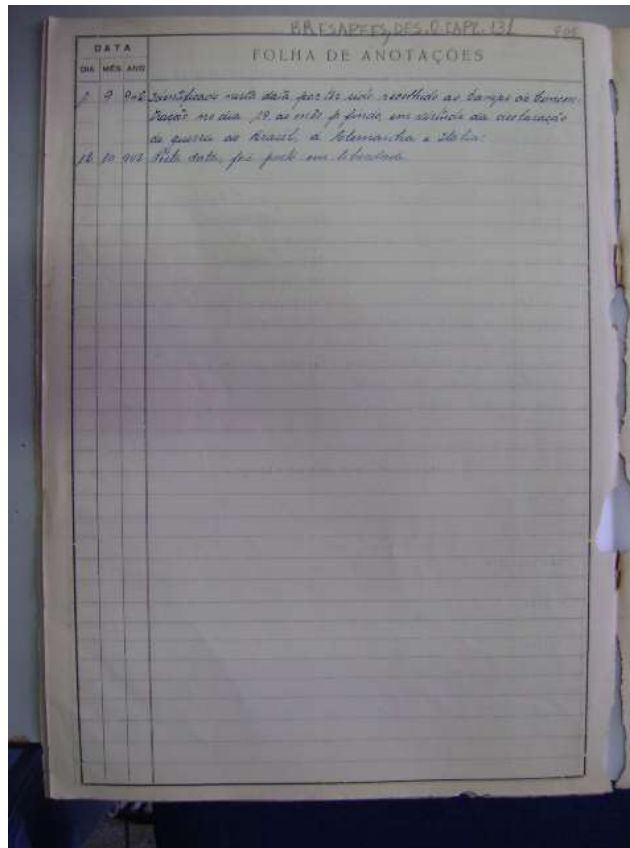 BR ESAPEES, DES.0.CAPC.131
DATA
FOLHA DE ANOTAÇÕES
DIA MÊS ANO
1 9 942 Identificado nesta data por ter sido recolhido ao Campo de Concen-
tração no dia 19, do mês p. findo, em virtude da declaração
de guerra do Brasil, á Alemanha e Italia.
12 10 942 Nesta data, foi posto em liberdade